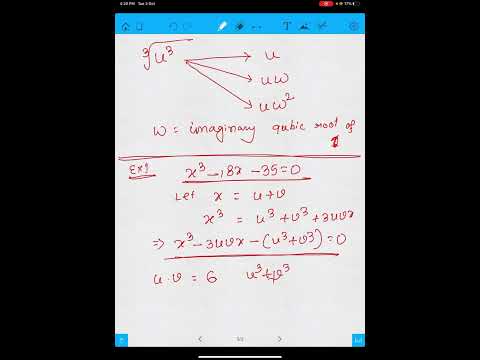 4:20 PM Tue 5 Oct
17%
∛u³
u
uω
uω²
ω = imaginary qubic root of 1
Ex1
x³ - 18x - 35 = 0
Let x = u+v
x³ = u³ + v³ + 3uvx
⇒ x³ - 3uvx - (u³+v³) = 0
u·v = 6 u³+v³